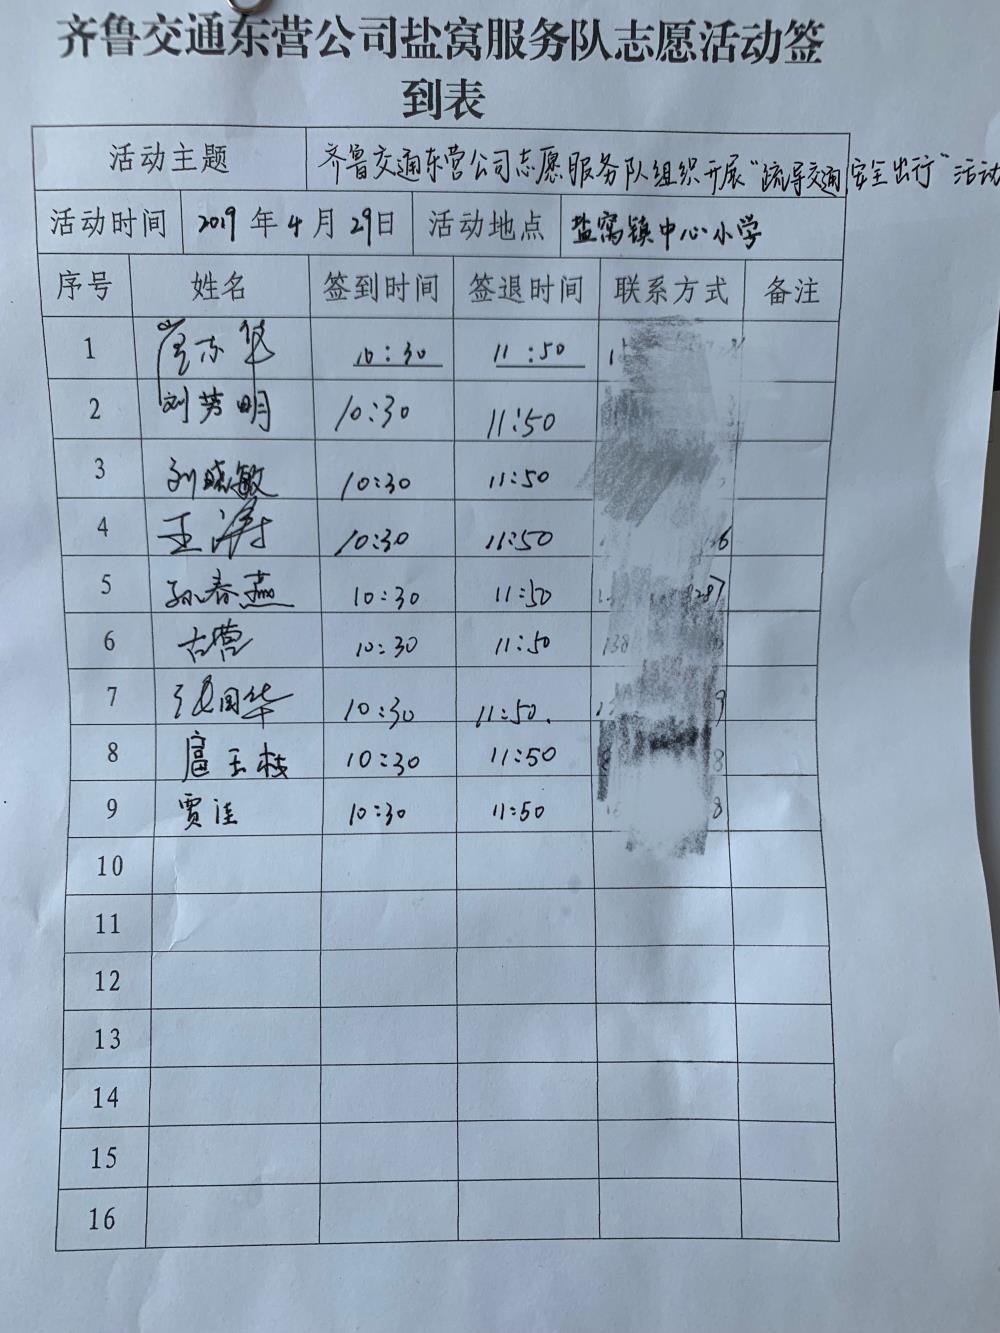 齐鲁交通东营公司盐窝服务队志愿活动签
到表
活动主题 齐鲁交通东营公司志愿服务队组织开展"疏导交通,安全出行"活动
活动时间 2019 年 4 月 29日 活动地点 盐窝镇中心小学
序号 姓名 签到时间 签退时间 联系方式 备注
1 10:30 11:50
2 刘芳明 10:30 11:50
3 刘晓敏 10:30 11:50
4 王涛 10:30 11:50 6
5 孙春燕 10:30 11:50 287
6 古营 10:30 11:50 138
7 张国华 10:30 11:50. 9
8 扈玉枝 10:30 11:50 8
9 贾佳 10:30 11:50 8
10
11
12
13
14
15
16